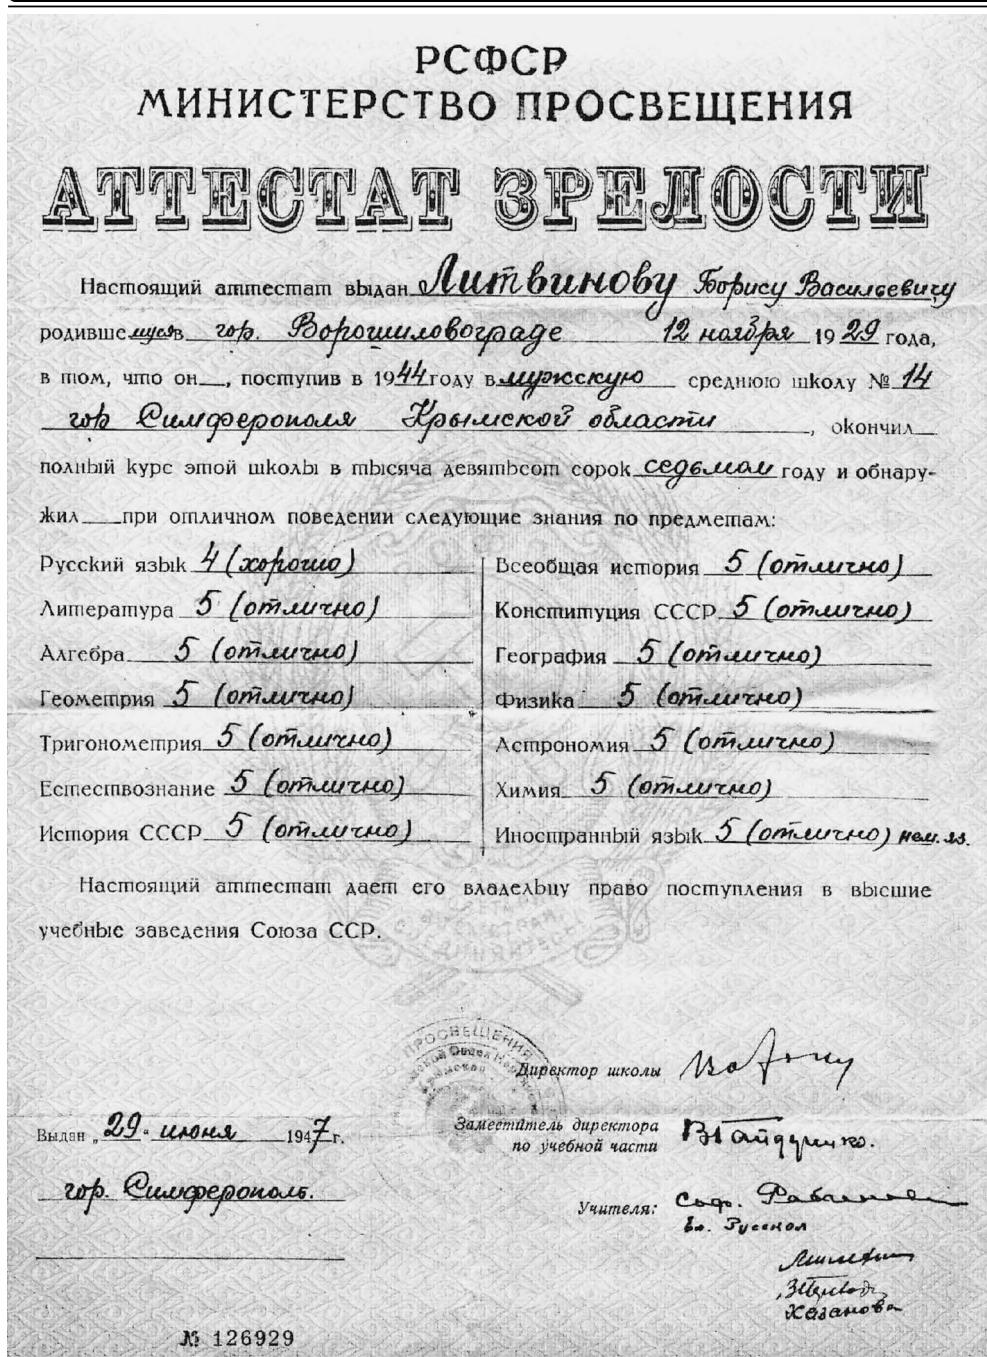 РСФСР
МИНИСТЕРСТВО ПРОСВЕЩЕНИЯ
АТТЕСТАТ ЗРЕЛОСТИ
Настоящий аттестат выдан Литвинову Борису Васильевичу
родившемуся в гор. Ворошиловограде 12 ноября 1929 года,
в том, что он , поступив в 1944 году в мужскую среднюю школу № 14
гор Симферополя Крымской области , окончил
полный курс этой школы в тысяча девятьсот сорок седьмом году и обнару-
жил при отличном поведении следующие знания по предметам:
Русский язык 4 (хорошо)
Литература 5 (отлично)
Алгебра 5 (отлично)
Геометрия 5 (отлично)
Тригонометрия 5 (отлично)
Естествознание 5 (отлично)
История СССР 5 (отлично)
Всеобщая история 5 (отлично)
Конституция СССР 5 (отлично)
География 5 (отлично)
Физика 5 (отлично)
Астрономия 5 (отлично)
Химия 5 (отлично)
Иностранный язык 5 (отлично) нем. яз.
Настоящий аттестат дает его владельцу право поступления в высшие
учебные заведения Союза ССР.
ПРОСВЕЩЕНИЯ
Директор школы
Заместитель директора
по учебной части
Учителя:
Казанова
Выдан „29" июня 1947 г.
гор. Симферополь.
№ 126929